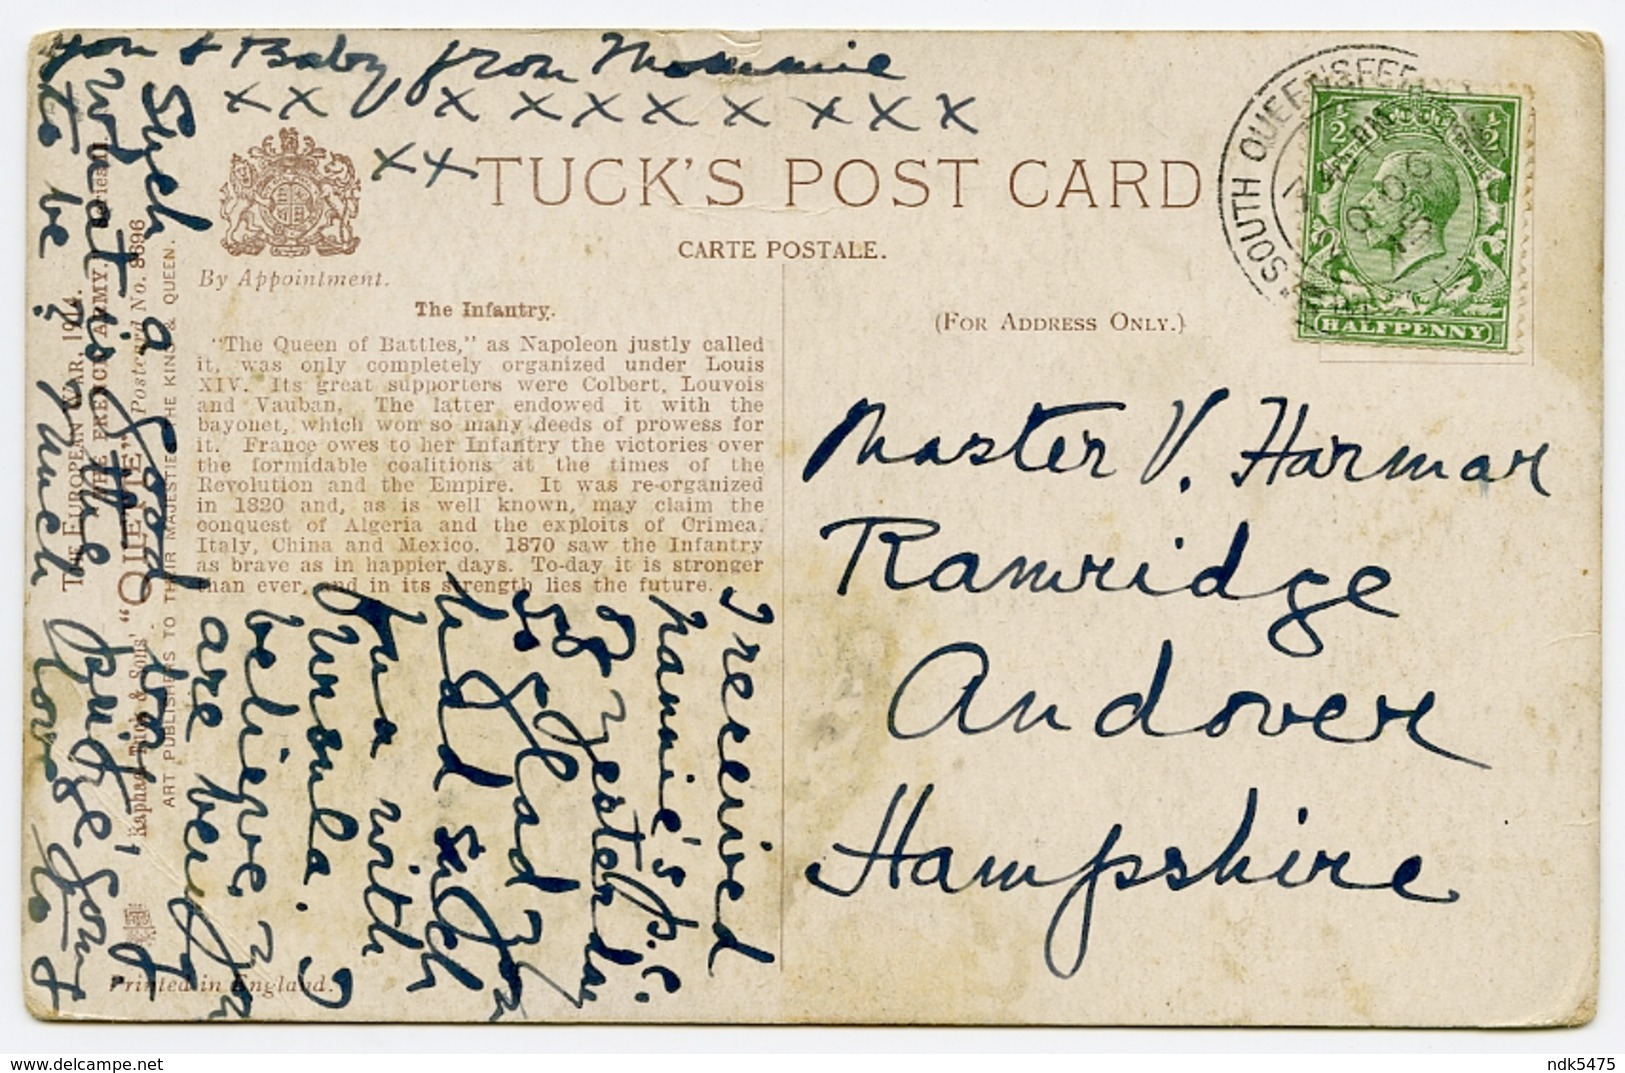 you & Baby from Mommie
x x x x x x x x x x
x x
TUCK'S POST CARD
CARTE POSTALE.
By Appointment.
(FOR ADDRESS ONLY.)
SOUTH QUEENSFER
HALFPENNY
The Infantry.
"The Queen of Battles," as Napoleon justly called
it, was only completely organized under Louis
XIV. Its great supporters were Colbert, Louvois
and Vauban. The latter endowed it with the
bayonet, which won so many deeds of prowess for
it. France owes to her Infantry the victories over
the formidable coalitions at the times of the
Revolution and the Empire. It was re-organized
in 1820 and, as is well known, may claim the
conquest of Algeria and the exploits of Crimea,
Italy, China and Mexico. 1870 saw the Infantry
as brave as in happier days. To-day it is stronger
than ever, and in its strength lies the future.
Master V. Harmar
Ramridge
Andover
Hampshire
I received
Nannie's p.c.
of yesterday
So glad you
had such
fun with
Ursula. I
believe you
are being
Such a good boy
What is the Bridge going
to be? Much love to
THE EUROPEAN WAR, 1914.
THE FRENCH ARMY. Series II
Raphael Tuck & Sons' "OILETTE" Postcard No. 8696
ART PUBLISHERS TO THEIR MAJESTIES THE KING & QUEEN.
Printed in England.
ndk5475
www.delcampe.net